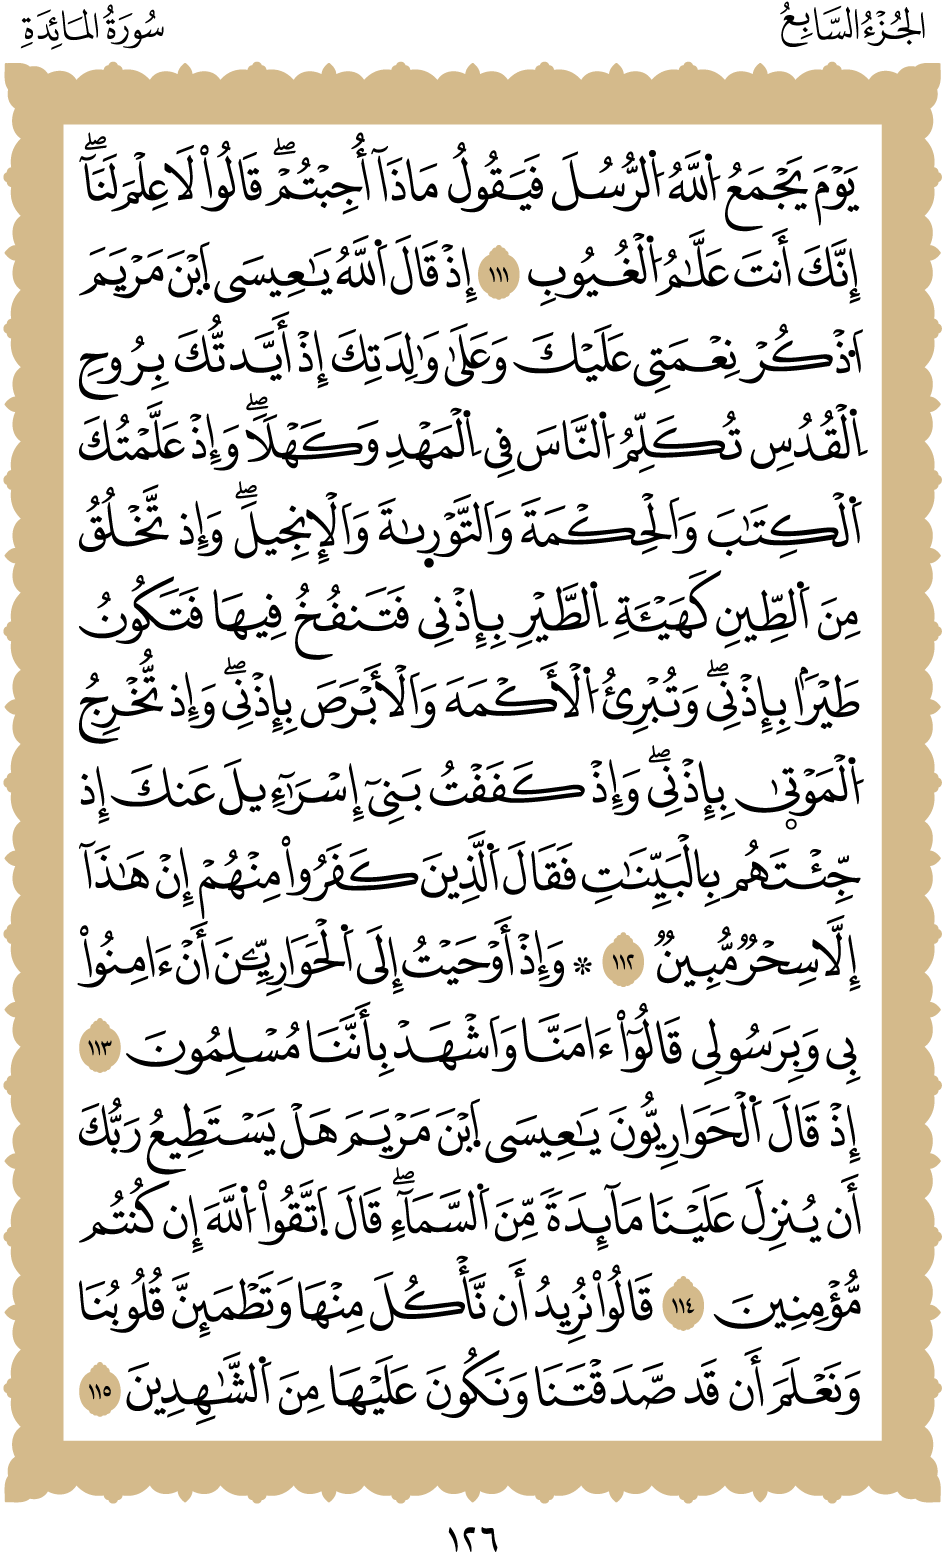 الجُزْءُ السَّابِعُ
سُورَةُ المَائِدَةِ
يَوْمَ يَجْمَعُ اُ۬للَّهُ اُ۬لرُّسُلَ فَيَقُولُ مَاذَآ أُجِبْتُمْۖ قَالُواْ لَا عِلْمَ لَنَآۖ
إِنَّكَ أَنتَ عَلَّٰمُ اُ۬لْغُيُوبِ ١١١ إِذْ قَالَ اَ۬للَّهُ يَٰعِيسَى اَ۪بْنَ مَرْيَمَ
اَ۟ذْكُرْ نِعْمَتِي عَلَيْكَ وَعَلَىٰ وَٰلِدَتِكَ إِذْ أَيَّدتُّكَ بِرُوحِ
اِ۬لْقُدُسِ تُكَلِّمُ اُ۬لنَّاسَ فِي اِ۬لْمَهْدِ وَكَهْلاٗۖ وَإِذْ عَلَّمْتُكَ
اَ۬لْكِتَٰبَ وَالْحِكْمَةَ وَالتَّوْر۪ىٰةَ وَالْإِنجِيلَۖ وَإِذ تَّخْلُقُ
مِنَ اَ۬لطِّينِ كَهَيْـَٔةِ اِ۬لطَّيْرِ بِإِذْنِي فَتَنفُخُ فِيهَا فَتَكُونُ
طَيْراَۢ بِإِذْنِيۖ وَتُبْرِئُ اُ۬لْأَكْمَهَ وَالْأَبْرَصَ بِإِذْنِيۖ وَإِذ تُّخْرِجُ
اُ۬لْمَوْت۪ىٰ بِإِذْنِيۖ وَإِذْ كَفَفْتُ بَنِيٓ إِسْرَآءِيلَ عَنكَ إِذ
جِّئْتَهُم بِالْبَيِّنَٰتِ فَقَالَ اَ۬لَّذِينَ كَفَرُواْ مِنْهُمْ إِنْ هَٰذَآ
إِلَّا سِحْرٞ مُّبِينٞ ١١٢ * وَإِذْ أَوْحَيْتُ إِلَى اَ۬لْحَوَارِيِّـۧنَ أَنْ ءَامِنُواْ
بِي وَبِرَسُولِي قَالُوٓاْ ءَامَنَّا وَاشْهَدْ بِأَنَّنَا مُسْلِمُونَ ١١٣
إِذْ قَالَ اَ۬لْحَوَارِيُّونَ يَٰعِيسَى اَ۪بْنَ مَرْيَمَ هَلْ يَسْتَطِيعُ رَبُّكَ
أَن يُنزِلَ عَلَيْنَا مَآئِدَةٗ مِّنَ اَ۬لسَّمَآءِۖ قَالَ اَ۪تَّقُواْ اُ۬للَّهَ إِن كُنتُم
مُّؤْمِنِينَ ١١٤ قَالُواْ نُرِيدُ أَن نَّأْكُلَ مِنْهَا وَتَطْمَئِنَّ قُلُوبُنَا
وَنَعْلَمَ أَن قَد صَّدَقْتَنَا وَنَكُونَ عَلَيْهَا مِنَ اَ۬لشَّٰهِدِينَ ١١٥
١٢٦